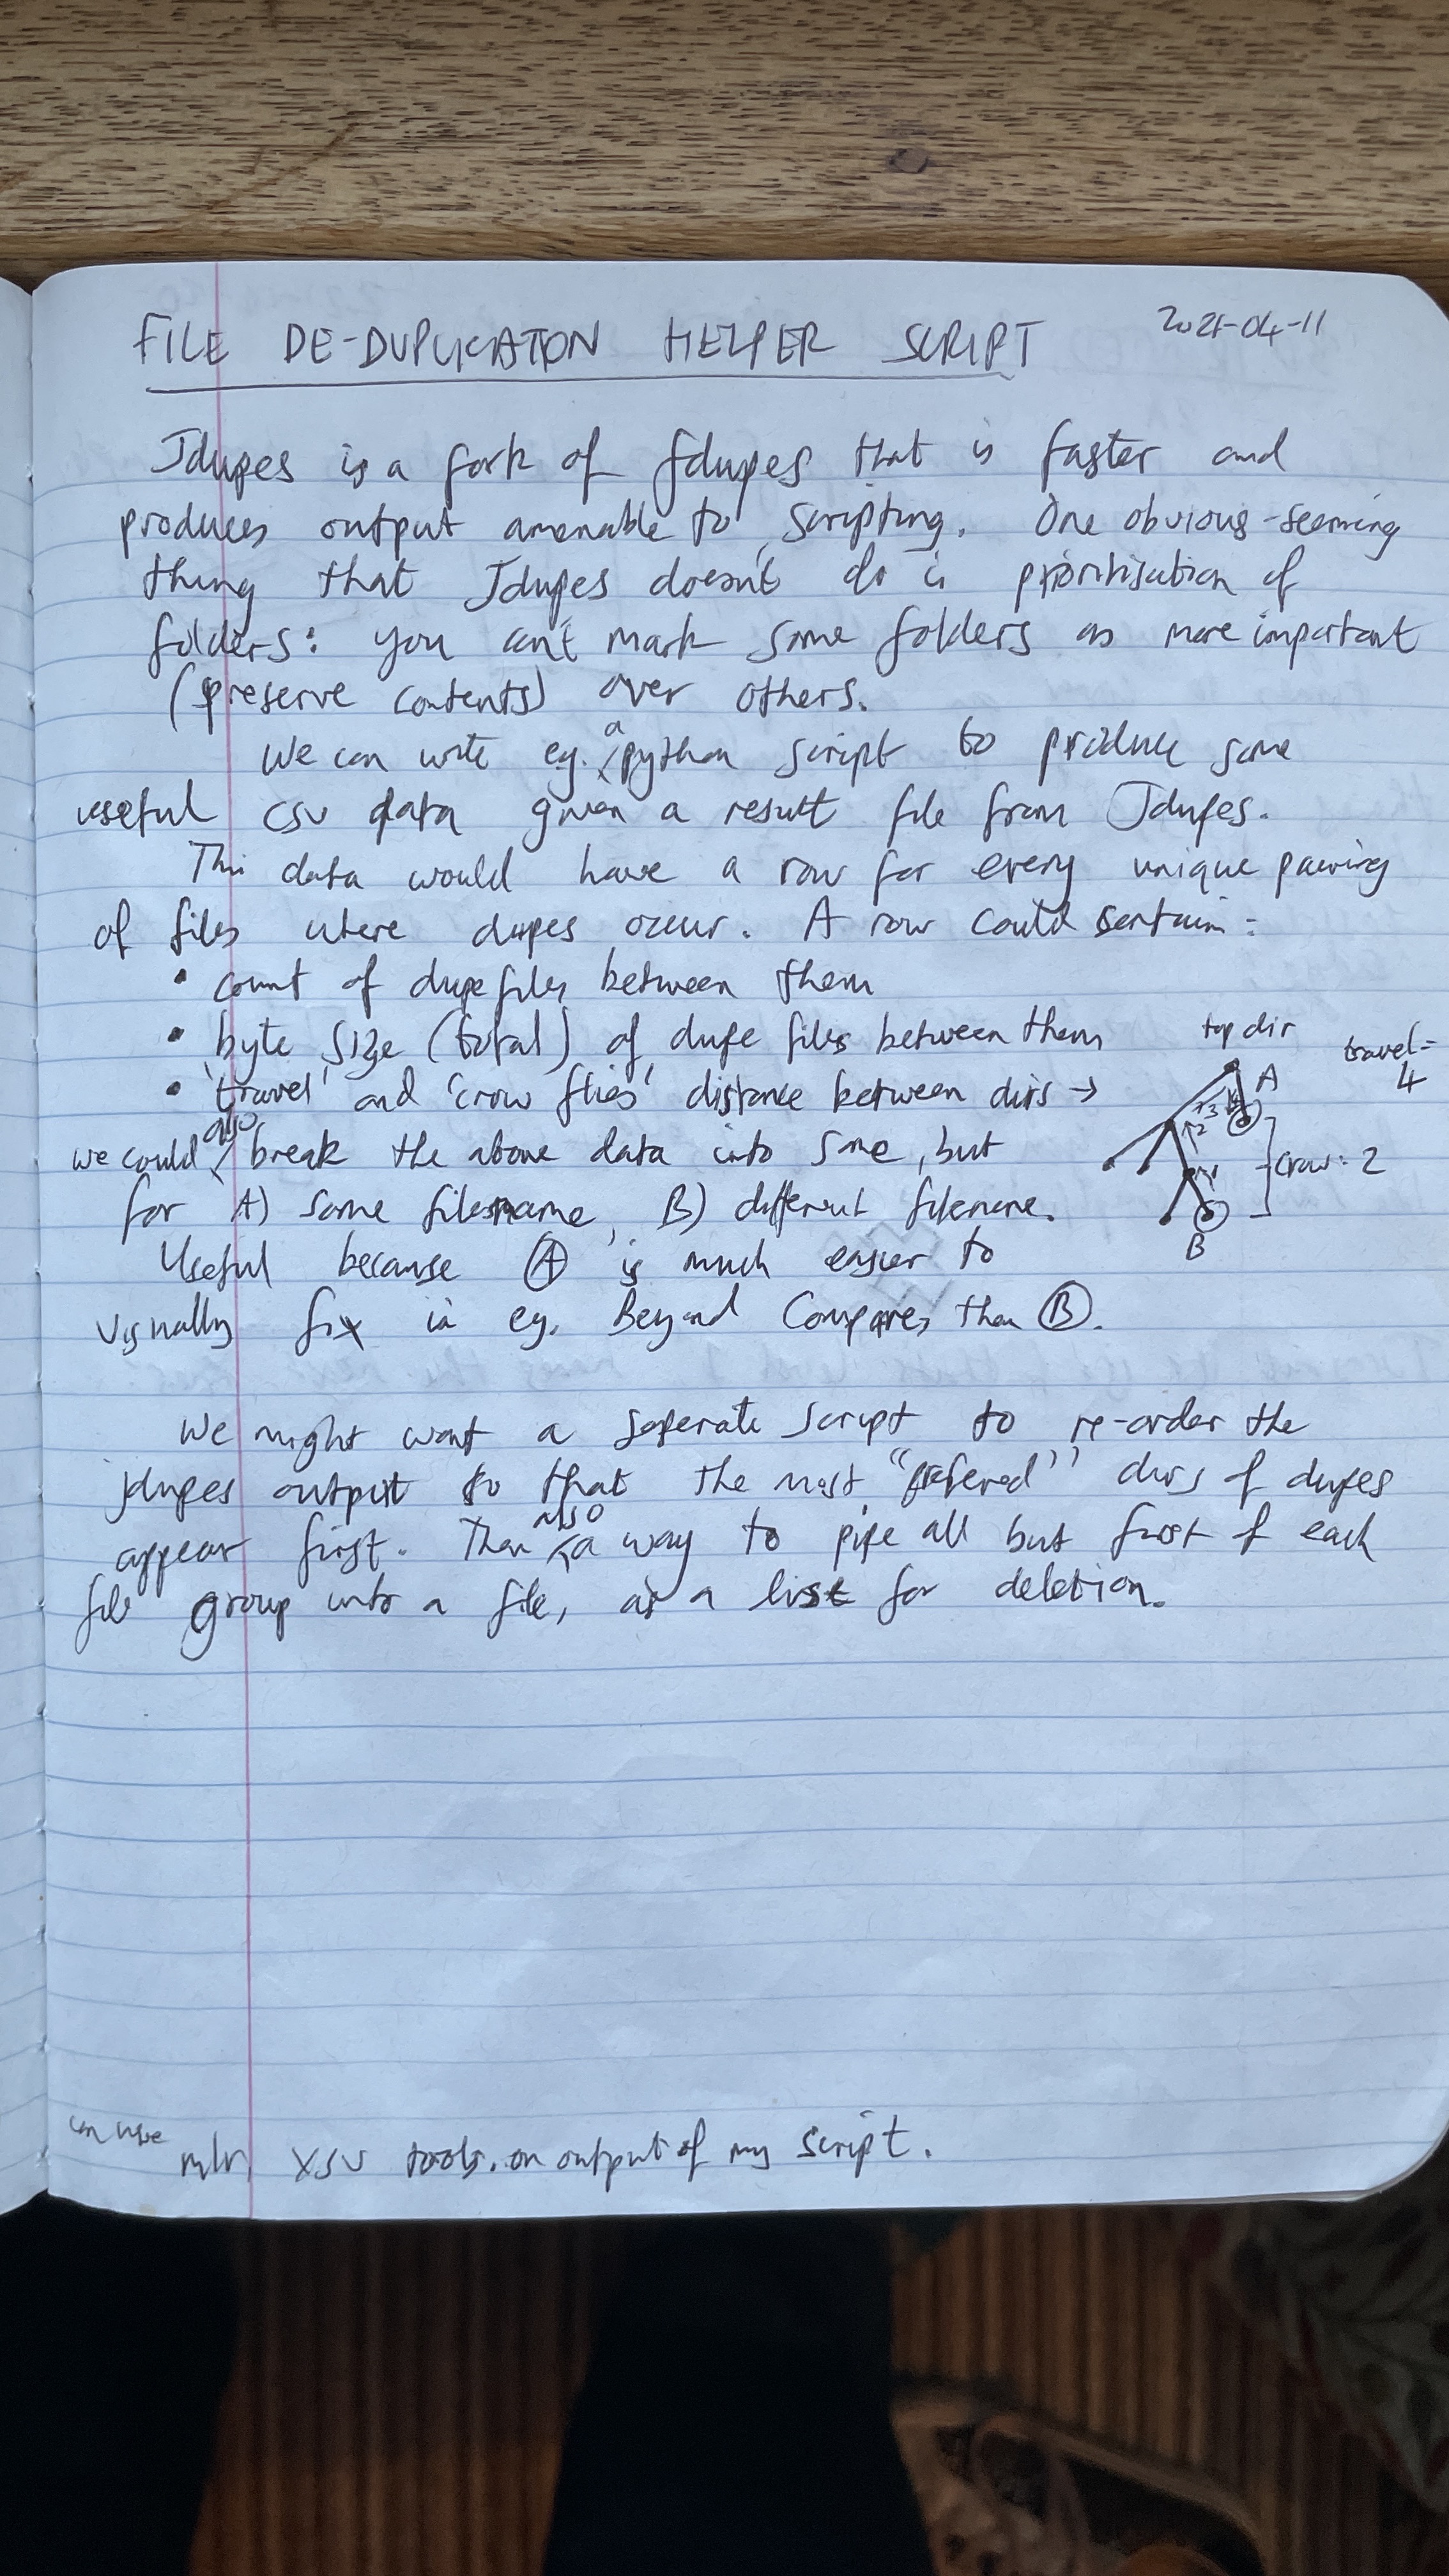 FILE DE-DUPLICATION HELPER SCRIPT 2021-04-11
Jdupes is a fork of fdupes that is faster and
produces output amenable to scripting. One obvious-seeming
thing that Jdupes doesn't do is prioritisation of
folders: you can't mark some folders as more important
(preserve contents) over others.
We can write eg. a python script to produce some
useful csv data given a result file from Jdupes.
This data would have a row for every unique pairing
of files where dupes occur. A row could contain:
• count of dupe files between them
• byte size (total) of dupe files between them
• 'travel' and 'crow flies' distance between dirs →
top dir
travel = 4
A
1
2
3
4
crow: 2
B
we could also break the above data into same, but
for A) same filename, B) different filename.
Useful because Ⓐ is much easier to
visually fix in eg. Beyond Compare, than Ⓑ.
We might want a seperate script to re-order the
jdupes output so that the most "prefered" dirs of dupes
appear first. Then also a way to pipe all but first of each
file group into a file, as a list for deletion.
can use mlr, xsv tools. on output of my script.